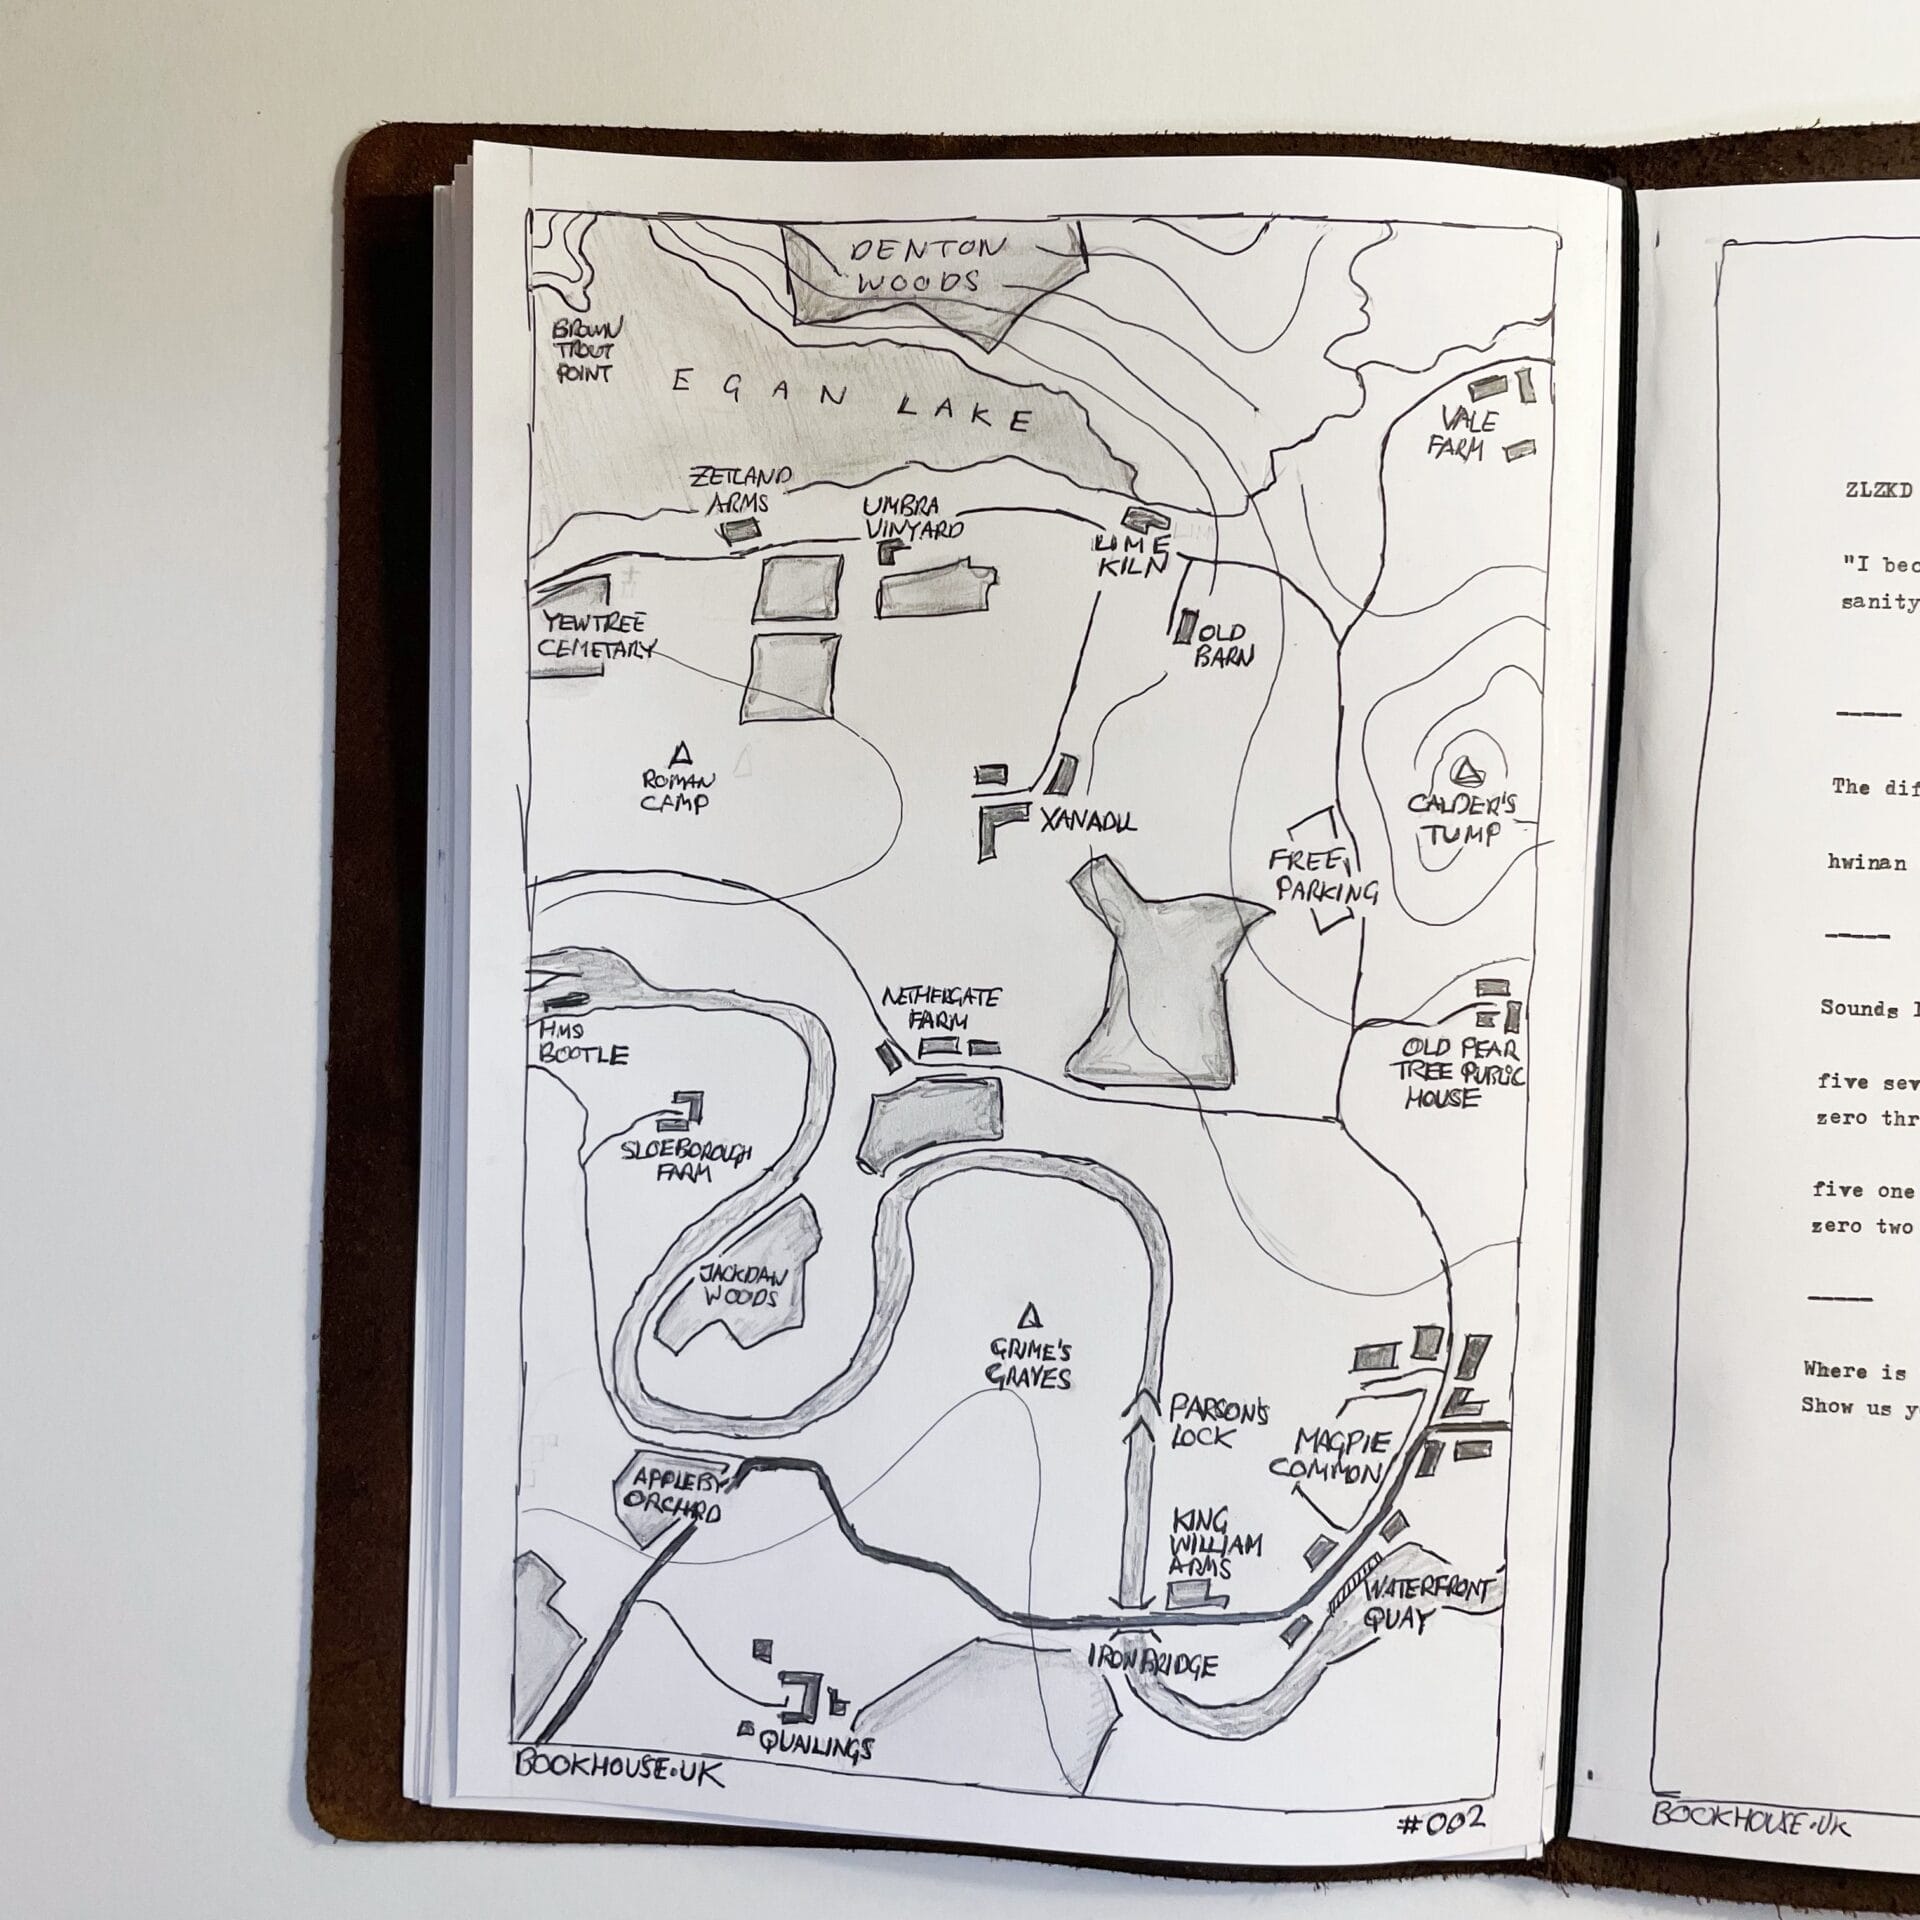 DENTON
WOODS
BROWN
TROUT
POINT
EGAN LAKE
VALE
FARM
ZETLAND
ARMS
UMBRA
VINYARD
LIME
KILN
YEWTREE
CEMETARY
OLD
BARN
ROMAN
CAMP
XANADU
CALDER'S
TUMP
FREE
PARKING
NETHERGATE
FARM
HMS
BOOTLE
OLD PEAR
TREE PUBLIC
HOUSE
SLOEBOROUGH
FARM
JACKDAW
WOODS
GRIME'S
GRAVES
PARSON'S
LOCK
MAGPIE
COMMON
APPLEBY
ORCHARD
KING
WILLIAM
ARMS
WATERFRONT
QUAY
IRONBRIDGE
QUAILINGS
BOOKHOUSE.UK
#002
ZLZKD
"I bec
sanity
-----
The dif
hwinan
-----
Sounds l
five sev
zero thr
five one
zero two
-----
Where is
Show us y
BOOKHOUSE.UK